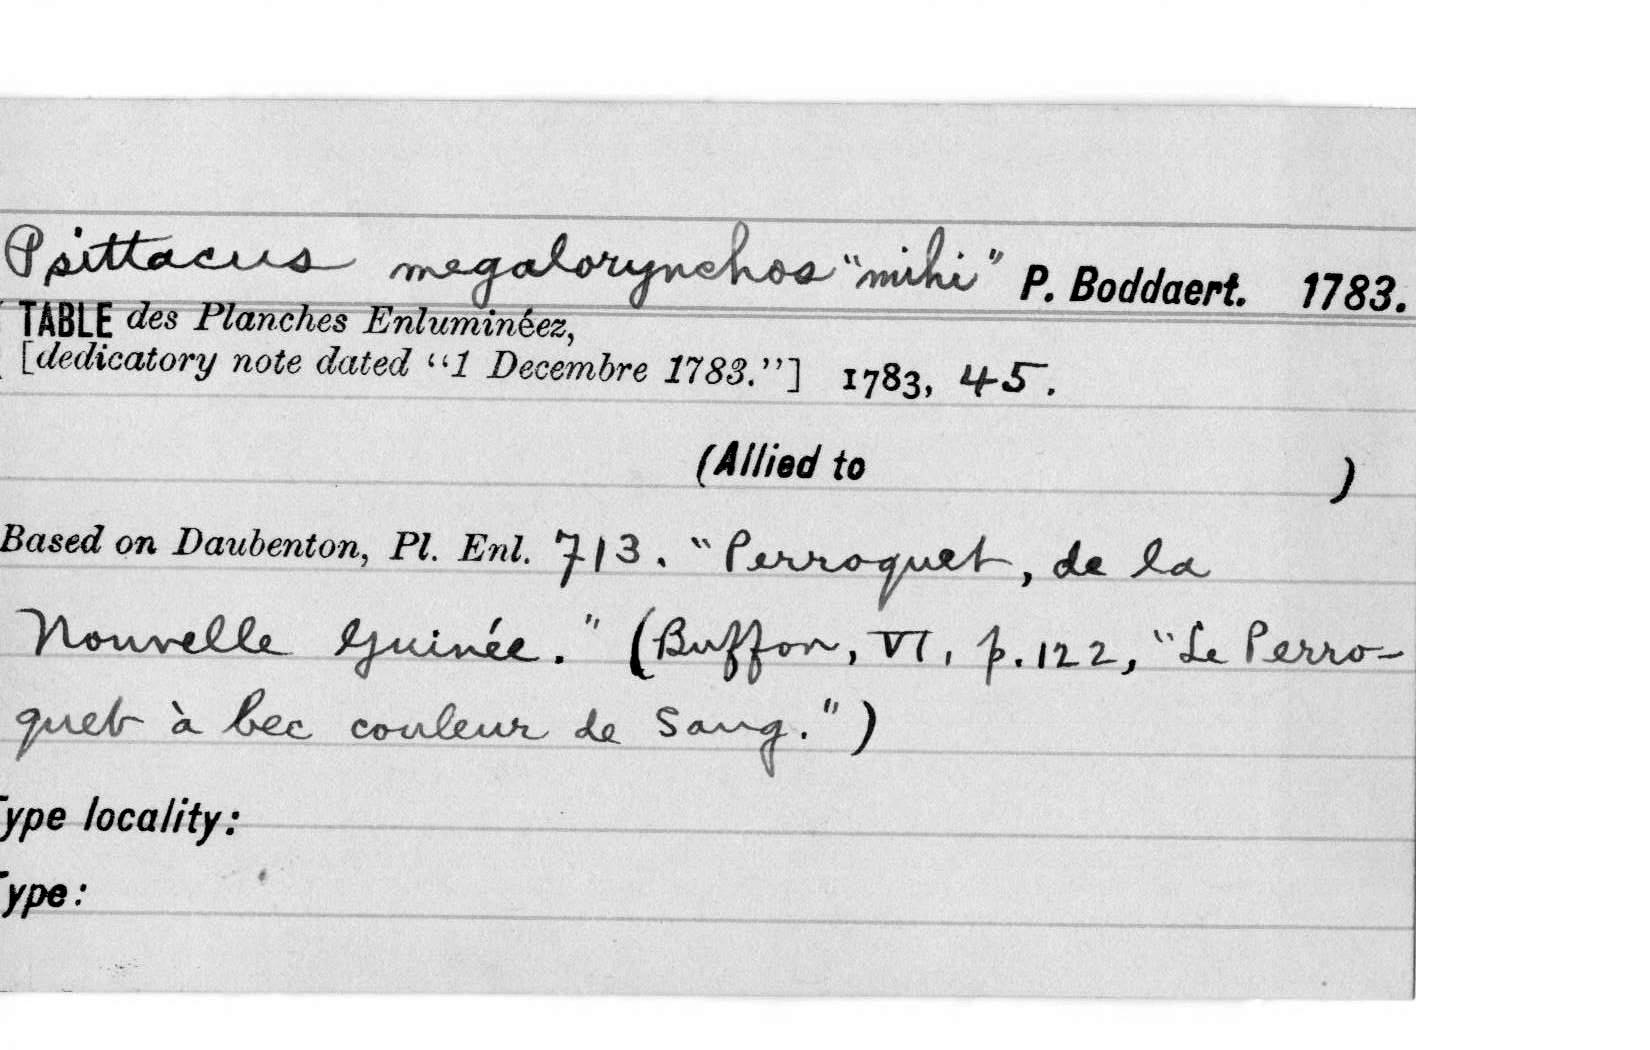 Psittacus megalorynchos "mihi" P. Boddaert. 1783.
TABLE des Planches Enluminéez,
[dedicatory note dated "1 Decembre 1783."] 1783, 45.
(Allied to )
Based on Daubenton, Pl. Enl. 713. "Perroquet, de la
Nouvelle Guinée." (Buffon, VI, p. 122, "Le Perro-
quet à bec couleur de Sang.")
Type locality:
Type: